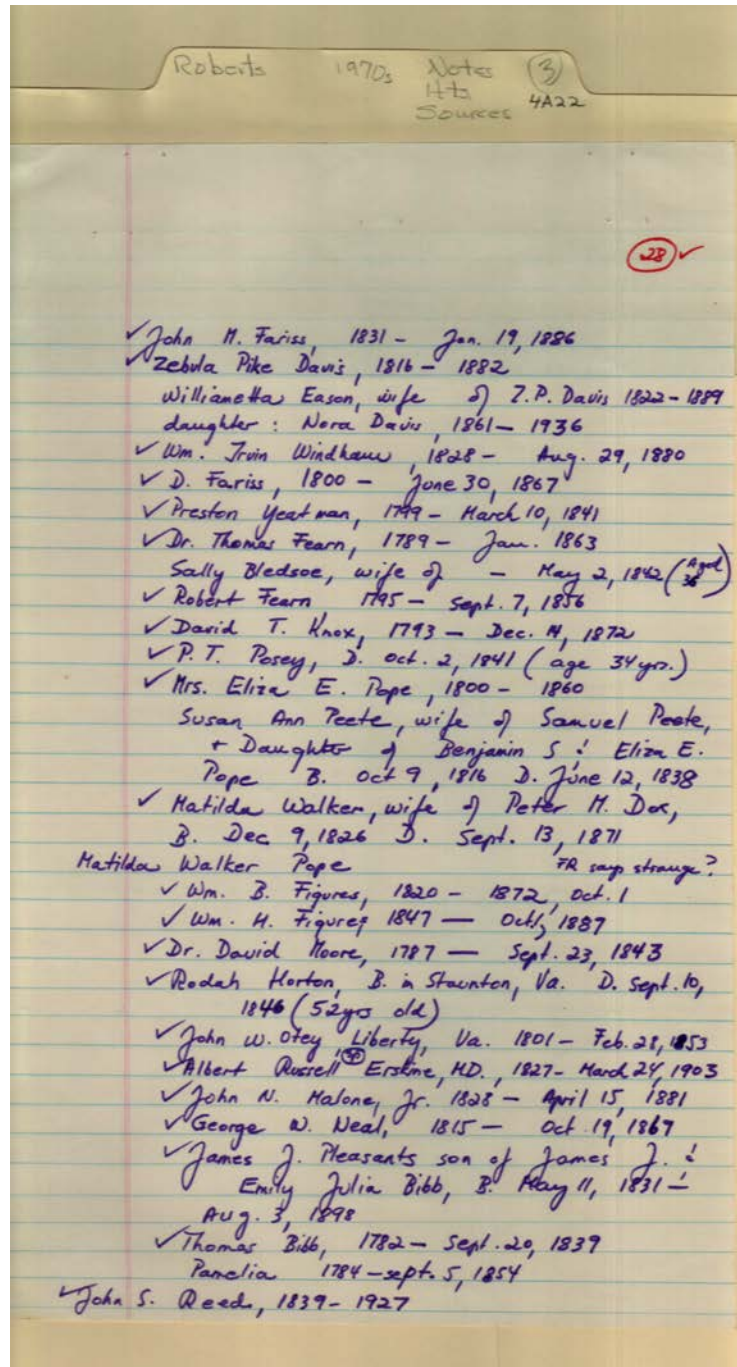 Roberts 1970s Notes (3)
Hts 4A22
Sources
28 ✓
✓ John M. Fariss, 1831 - Jan. 19, 1886
✓ Zebula Pike Davis, 1816 - 1882
Willianetta Eason, wife of Z.P. Davis 1822-1889
daughter: Nora Davis, 1861 - 1936
✓ Wm. Irvin Windham, 1828 - Aug. 29, 1880
✓ D. Fariss, 1800 - June 30, 1867
✓ Preston Yeatman, 1799 - March 10, 1841
✓ Dr. Thomas Fearn, 1789 - Jan. 1863
Sally Bledsoe, wife of - May 2, 1842 (Aged 36)
✓ Robert Fearn 1795 - Sept. 7, 1856
✓ David T. Knox, 1793 - Dec. 14, 1872
✓ P.T. Posey, D. Oct. 2, 1841 (age 34 yrs.)
✓ Mrs. Eliza E. Pope, 1800 - 1860
Susan Ann Peete, wife of Samuel Peete,
+ Daughter of Benjamin S & Eliza E.
Pope B. Oct 9, 1816 D. June 12, 1838
✓ Matilda Walker, wife of Peter M. Dox,
B. Dec 9, 1826 D. Sept. 13, 1871
Matilda Walker Pope FR says strange?
✓ Wm. B. Figures, 1820 - 1872, Oct. 1
✓ Wm. H. Figures 1847 — Oct 1, 1887
✓ Dr. David Moore, 1787 — Sept. 23, 1843
✓ Rodah Horton, B. in Staunton, Va. D. Sept. 10,
1846 (52 yrs old)
✓ John W. Otey, Liberty, Va. 1801 - Feb. 28, 1853
✓ Albert Russell Erskine, MD., 1827 - March 24, 1903
✓ John N. Malone, Jr. 1828 - April 15, 1881
✓ George W. Neal, 1815 - Oct. 19, 1867
✓ James J. Pleasants son of James J. &
Emily Julia Bibb, B. May 11, 1831 -
Aug. 3, 1898
✓ Thomas Bibb, 1782 - Sept. 20, 1839
Pamelia 1784 - Sept. 5, 1854
✓ John S. Reed, 1839 - 1927